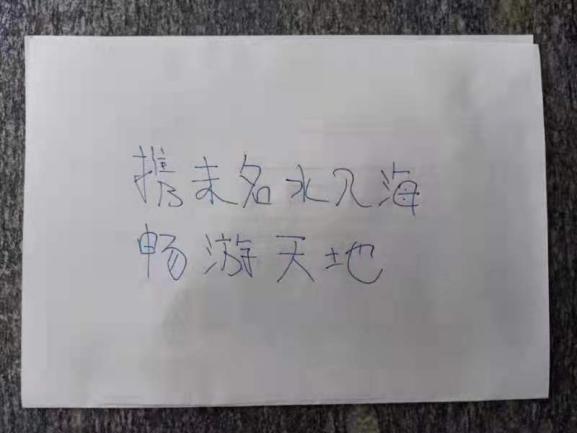 携未名水入海
畅游天地